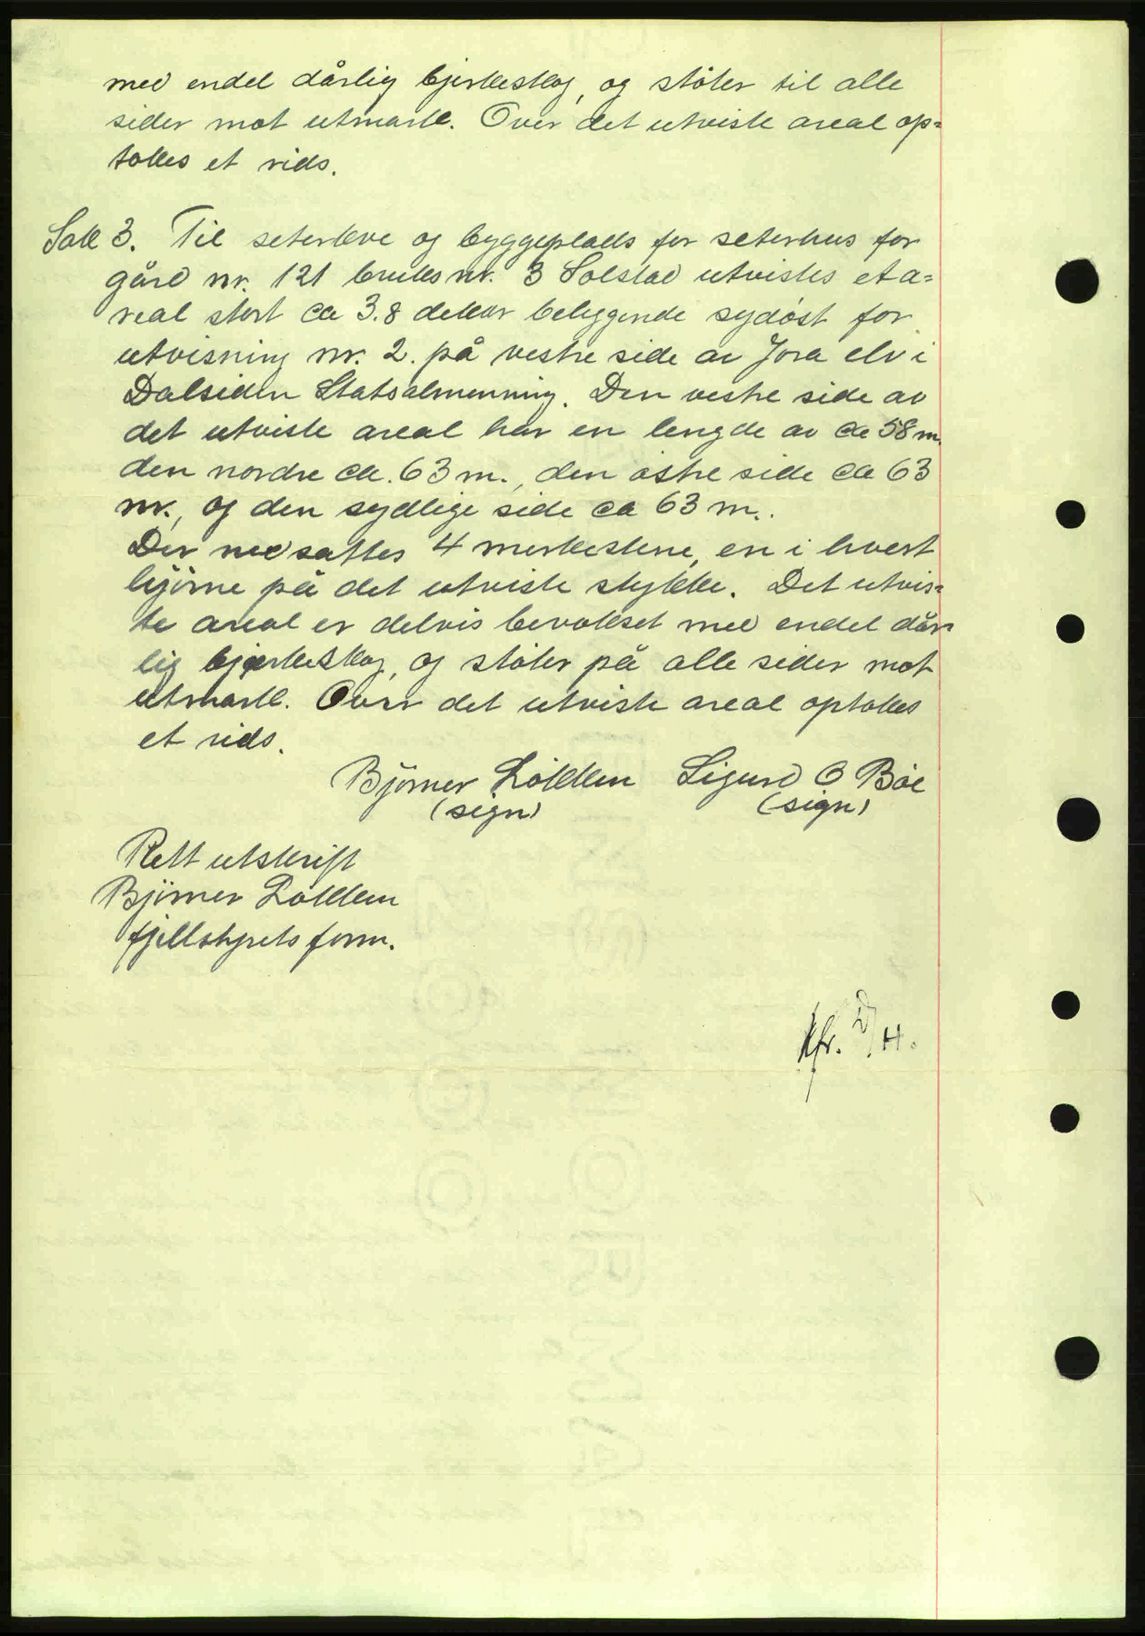 med endel dårlig bjerkeskog, og støter til alle
sider mot utmark. Over det utviste areal op=
tokes et rids.
Sak 3. Til seterløve og byggeplads for seterhus for
gård nr. 121 bruks nr. 3 Solstad utvistes et a=
real stort ca 3.8 dekar beliggende sydøst for
utvisning nr. 2. på vestre side av Jora elv i
Dalsiden Statsalmenning. Den vestre side av
det utviste areal har en lengde av ca 58 m.
den nordre ca. 63 m., den østre side ca 63
m., og den sydlige side ca 63 m..
Der nedsattes 4 merkestene, en i hvert
hjörne på det utviste stykke. Det utvis=
te areal er delvis bevokset med endel dår=
lig bjerkeskog, og støter på alle sider mot
utmark. Over det utviste areal optokes
et rids.
Björner Løkken Sigurd O Bøe
(sign) (sign)
Rett utskrift
Björner Løkken
fjellstyrets form.
Kfr.